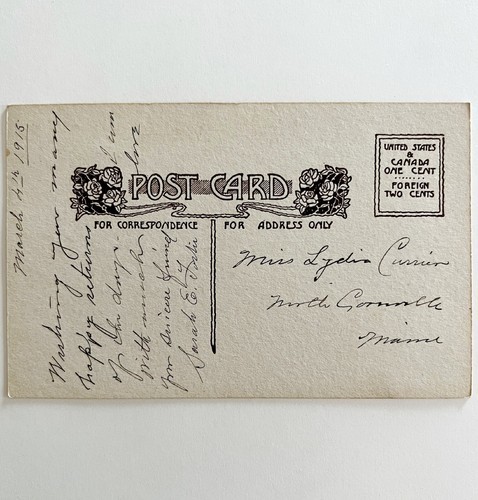 March 4th 1915
Wishing you many
happy returns
of the day.
With much love
your sincere friend
Sarah E.
I am
POST CARD
FOR CORRESPONDENCE
FOR ADDRESS ONLY
UNITED STATES
&
CANADA
ONE CENT
FOREIGN
TWO CENTS
Miss Lydia Currier
North
Maine